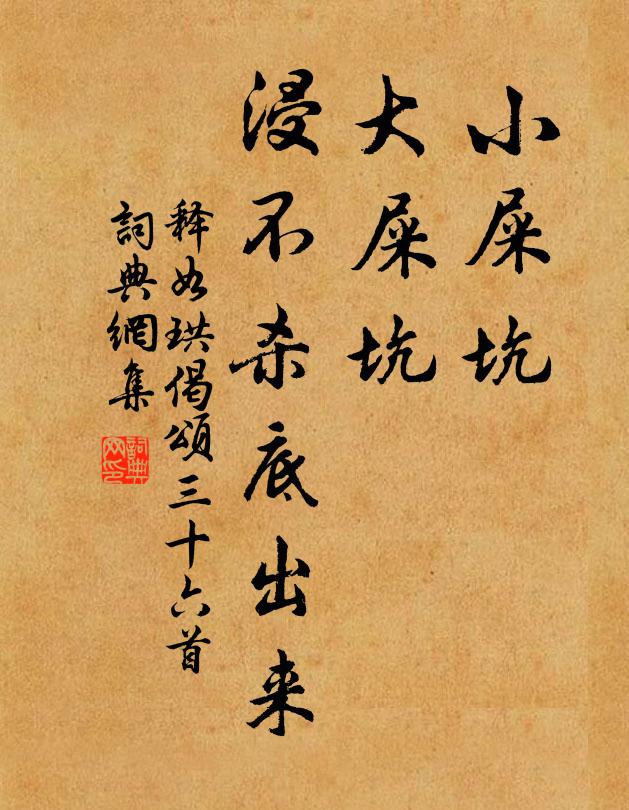 小屎坑
大屎坑
浸不杀底出来
释如珙偈頌三十六首
詞典網集
詞典网印